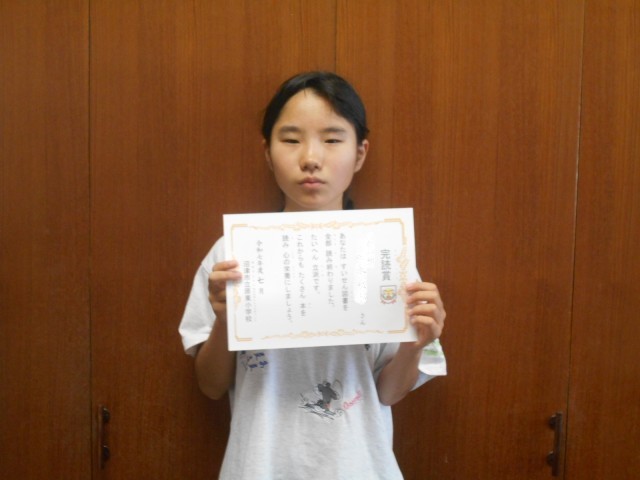 完読賞
さん
あなたは すいせん図書を
全部 読み終わりました。
たいへん 立派です。
これからも たくさん 本を
読み 心の栄養にしましょう。
令和七年度 七月
小学校